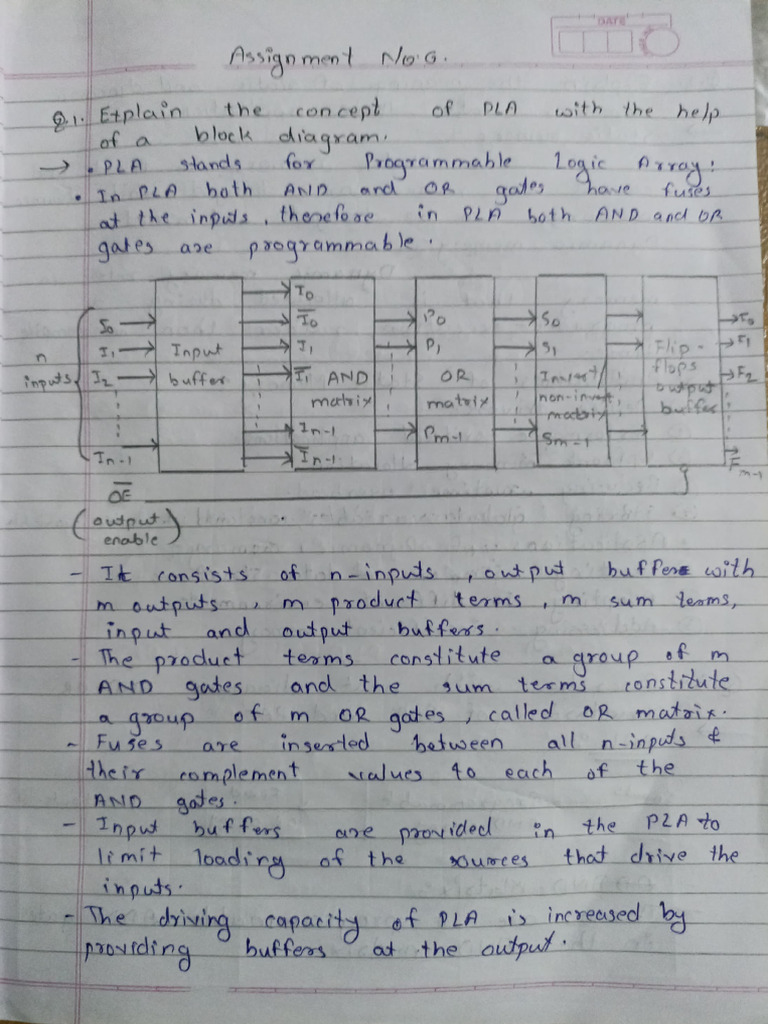 DATE
Assignment No.6.
Q.1. Explain the concept of PLA with the help
of a block diagram.
→ • PLA stands for Programmable Logic Array.
• In PLA both AND and OR gates have fuses
at the inputs, therefore in PLA both AND and OR
gates are programmable.
n
inputs
I0
I1
I2
In-1
Input
buffer
I0
I̅0
I1
I̅1 AND
matrix
In-1
I̅n-1
P0
P1
OR
matrix
Pm-1
S0
S1
Invert/
non-invert
matrix
Sm-1
Flip-
flops
output
buffer
F0
F1
F2
Fm-1
O̅E̅
(output
enable)
- It consists of n-inputs, output buffers with
m outputs, m product terms, m sum terms,
input and output buffers.
- The product terms constitute a group of m
AND gates and the sum terms constitute
a group of m OR gates, called OR matrix.
- Fuses are inserted between all n-inputs &
their complement values to each of the
AND gates.
- Input buffers are provided in the PLA to
limit loading of the sources that drive the
inputs.
- The driving capacity of PLA is increased by
providing buffers at the output.